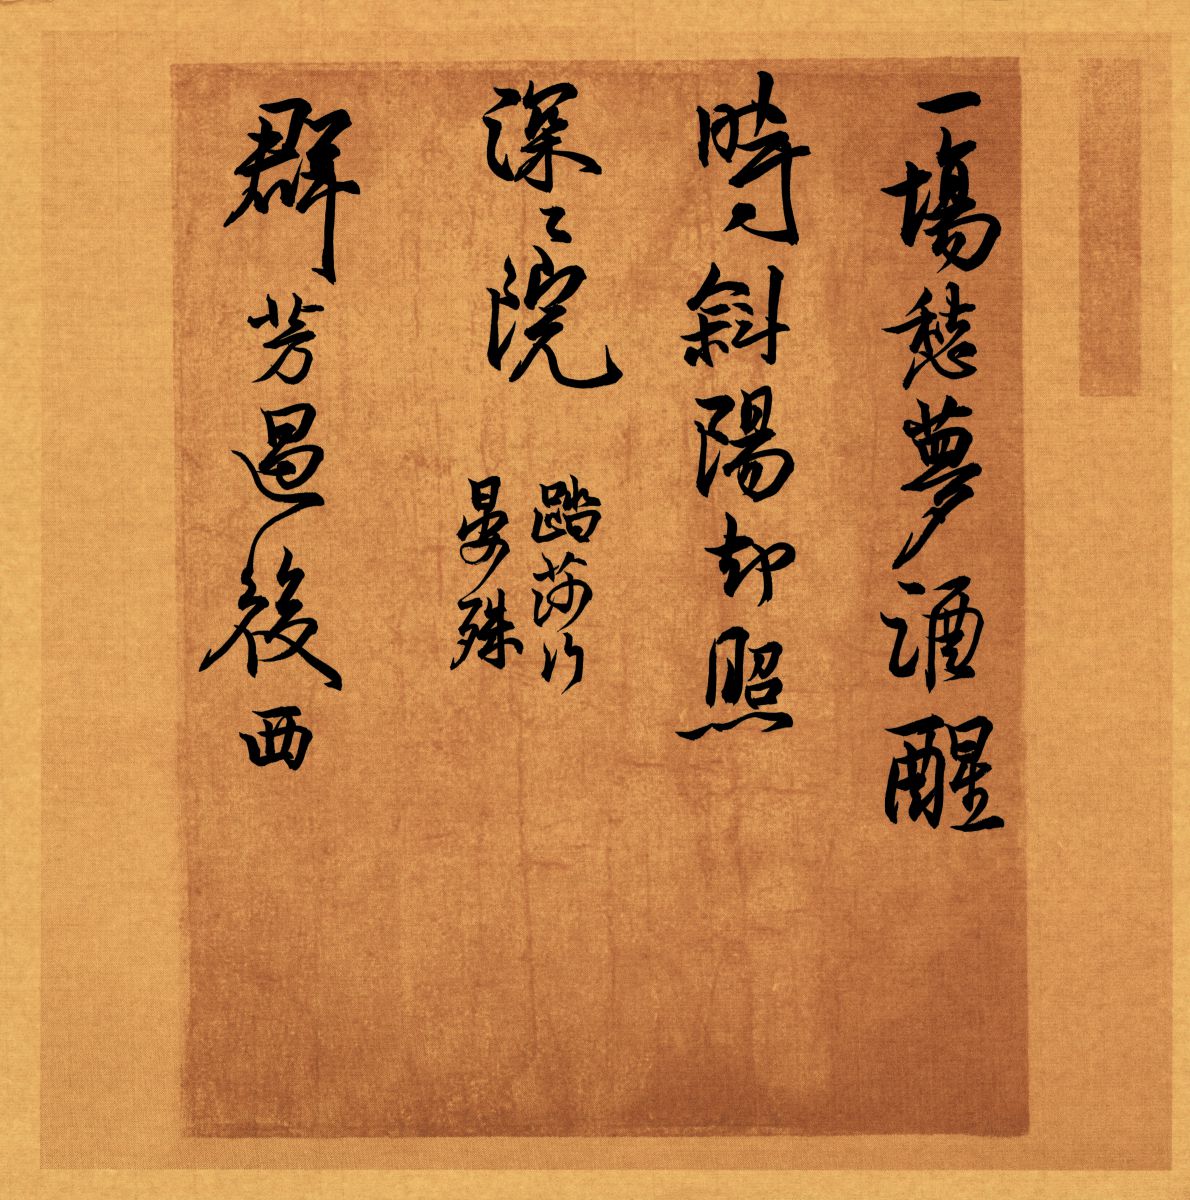 一場愁夢酒醒
時斜陽却照
深〻院
踏莎行
晏殊
群芳過後西